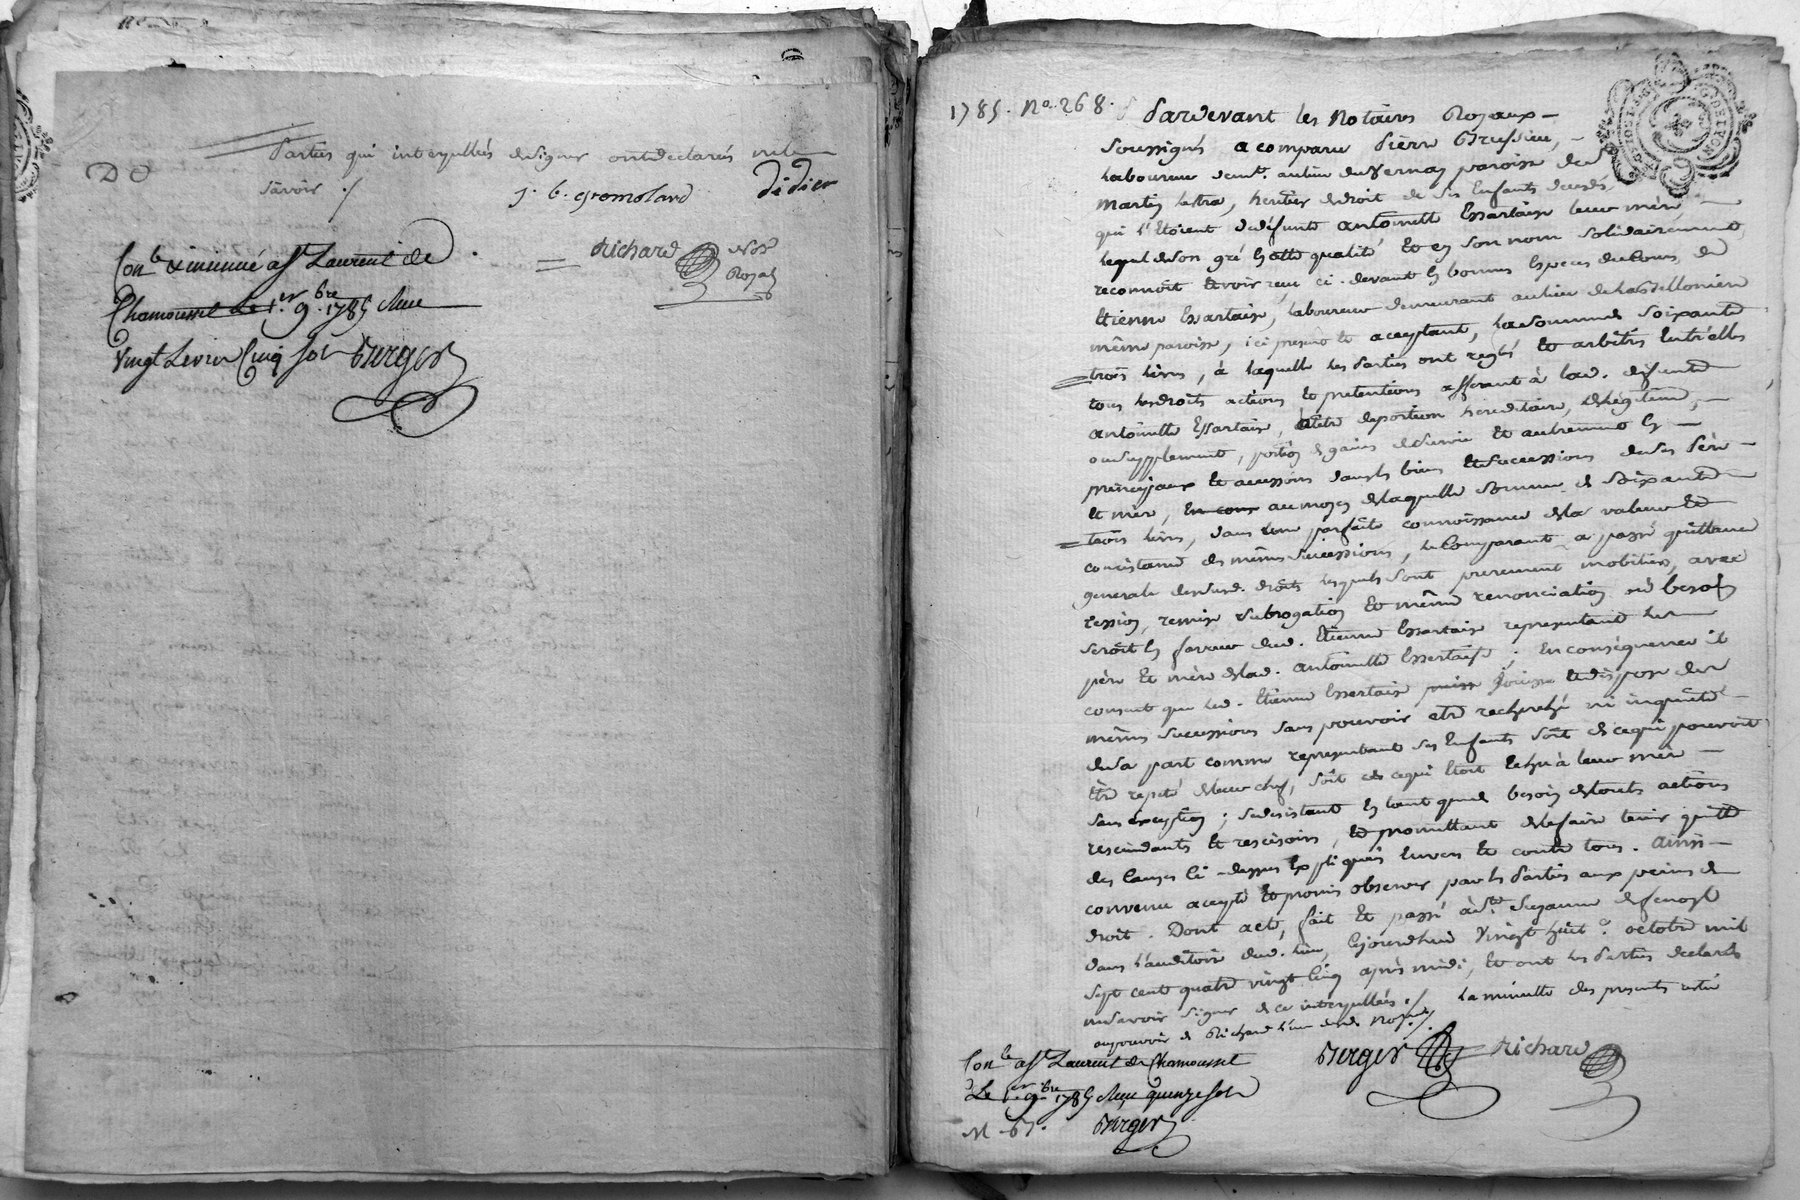 Parties qui interpellées designer ont declarés ne le
D O
savoir ./
j. b. gromolard
Didier
Richard Nore
Royal
Conlé & insinué a St Laurent de
Chamousset Le 1.er 9.bre 1785 Reçu
vingt Livres Cinq sols Berger
1785. No. 268.
Pardevant les Notaires Royaux
soussignés a comparu Pierre Bressieu,
Laboureur demt. au lieu du Vernay paroisse de St
Martin Lestra, heritier de droit de ses Enfants decedés,
qui l'étoient de défunte antoinette Essartaise leur mere,
lequel de son gré En cette qualité Et en son nom solidairement,
reconnoit avoir reçu ci-devant En bonnes Especes de Cours, de
Etienne Essartaise, laboureur demeurant au lieu de
même paroisse, ici present et acceptant, la somme de soixante
trois livres, à laquelle les Parties ont reglé Et arbitré Entr'elles
tous les droits actions Et pretentions afferant à lad. défunte
antoinette Essartaise, à titre de portion hereditaire, de legitime,
ou de supplement, portion de gains de survie Et autrement En
principaux Et accessoires dans les biens Et successions de ses Pere
Et mere, au moyen de laquelle somme de soixante
trois livres, dans une parfaite connoissance de la valeur Et
consistance des mêmes successions, le Comparant a passé quittance
generale desd. droits lesquels sont purement mobiliers, avec
cession, remise subrogation Et même renonciation si besoin
seroit En faveur dud. Etienne Essartaise representant les
père Et mère de lad. antoinette Essertaise ; En consequence il
consent que led. Etienne Essertaise jouisse Et dispose des
mêmes successions sans pouvoir etre recherché ni inquiété
de sa part comme representant ses Enfants soit de ce qui pouvoit
Etre repeté de leur chef, soit de ce qui Etoit Echu à leur mère
sans exception ; se desistant En tant que de besoin de toutes actions
rescindants Et rescisoires, Et promettant de le faire tenir quitte
des Causes Ci-dessus Expliquées Envers Et contre tous. Ainsi
convenu accepté Et promis observer par les Parties aux peines de
droit. Dont acte, fait Et passé à
dans l'auditoire dud. lieu, cejourdhui vingt huit octobre mil
sept cent quatre vingt Cinq après midi, Et ont les Parties declarés
ne savoir signer de ce interpellées ./ La minutte des presentes restée
au pouvoir de Richard l'un desd. Nores ./.
Berger Richard
Conlé a St Laurent de Chamousset
Le 1.er 9.bre 1785 Reçu quinze sols
Berger